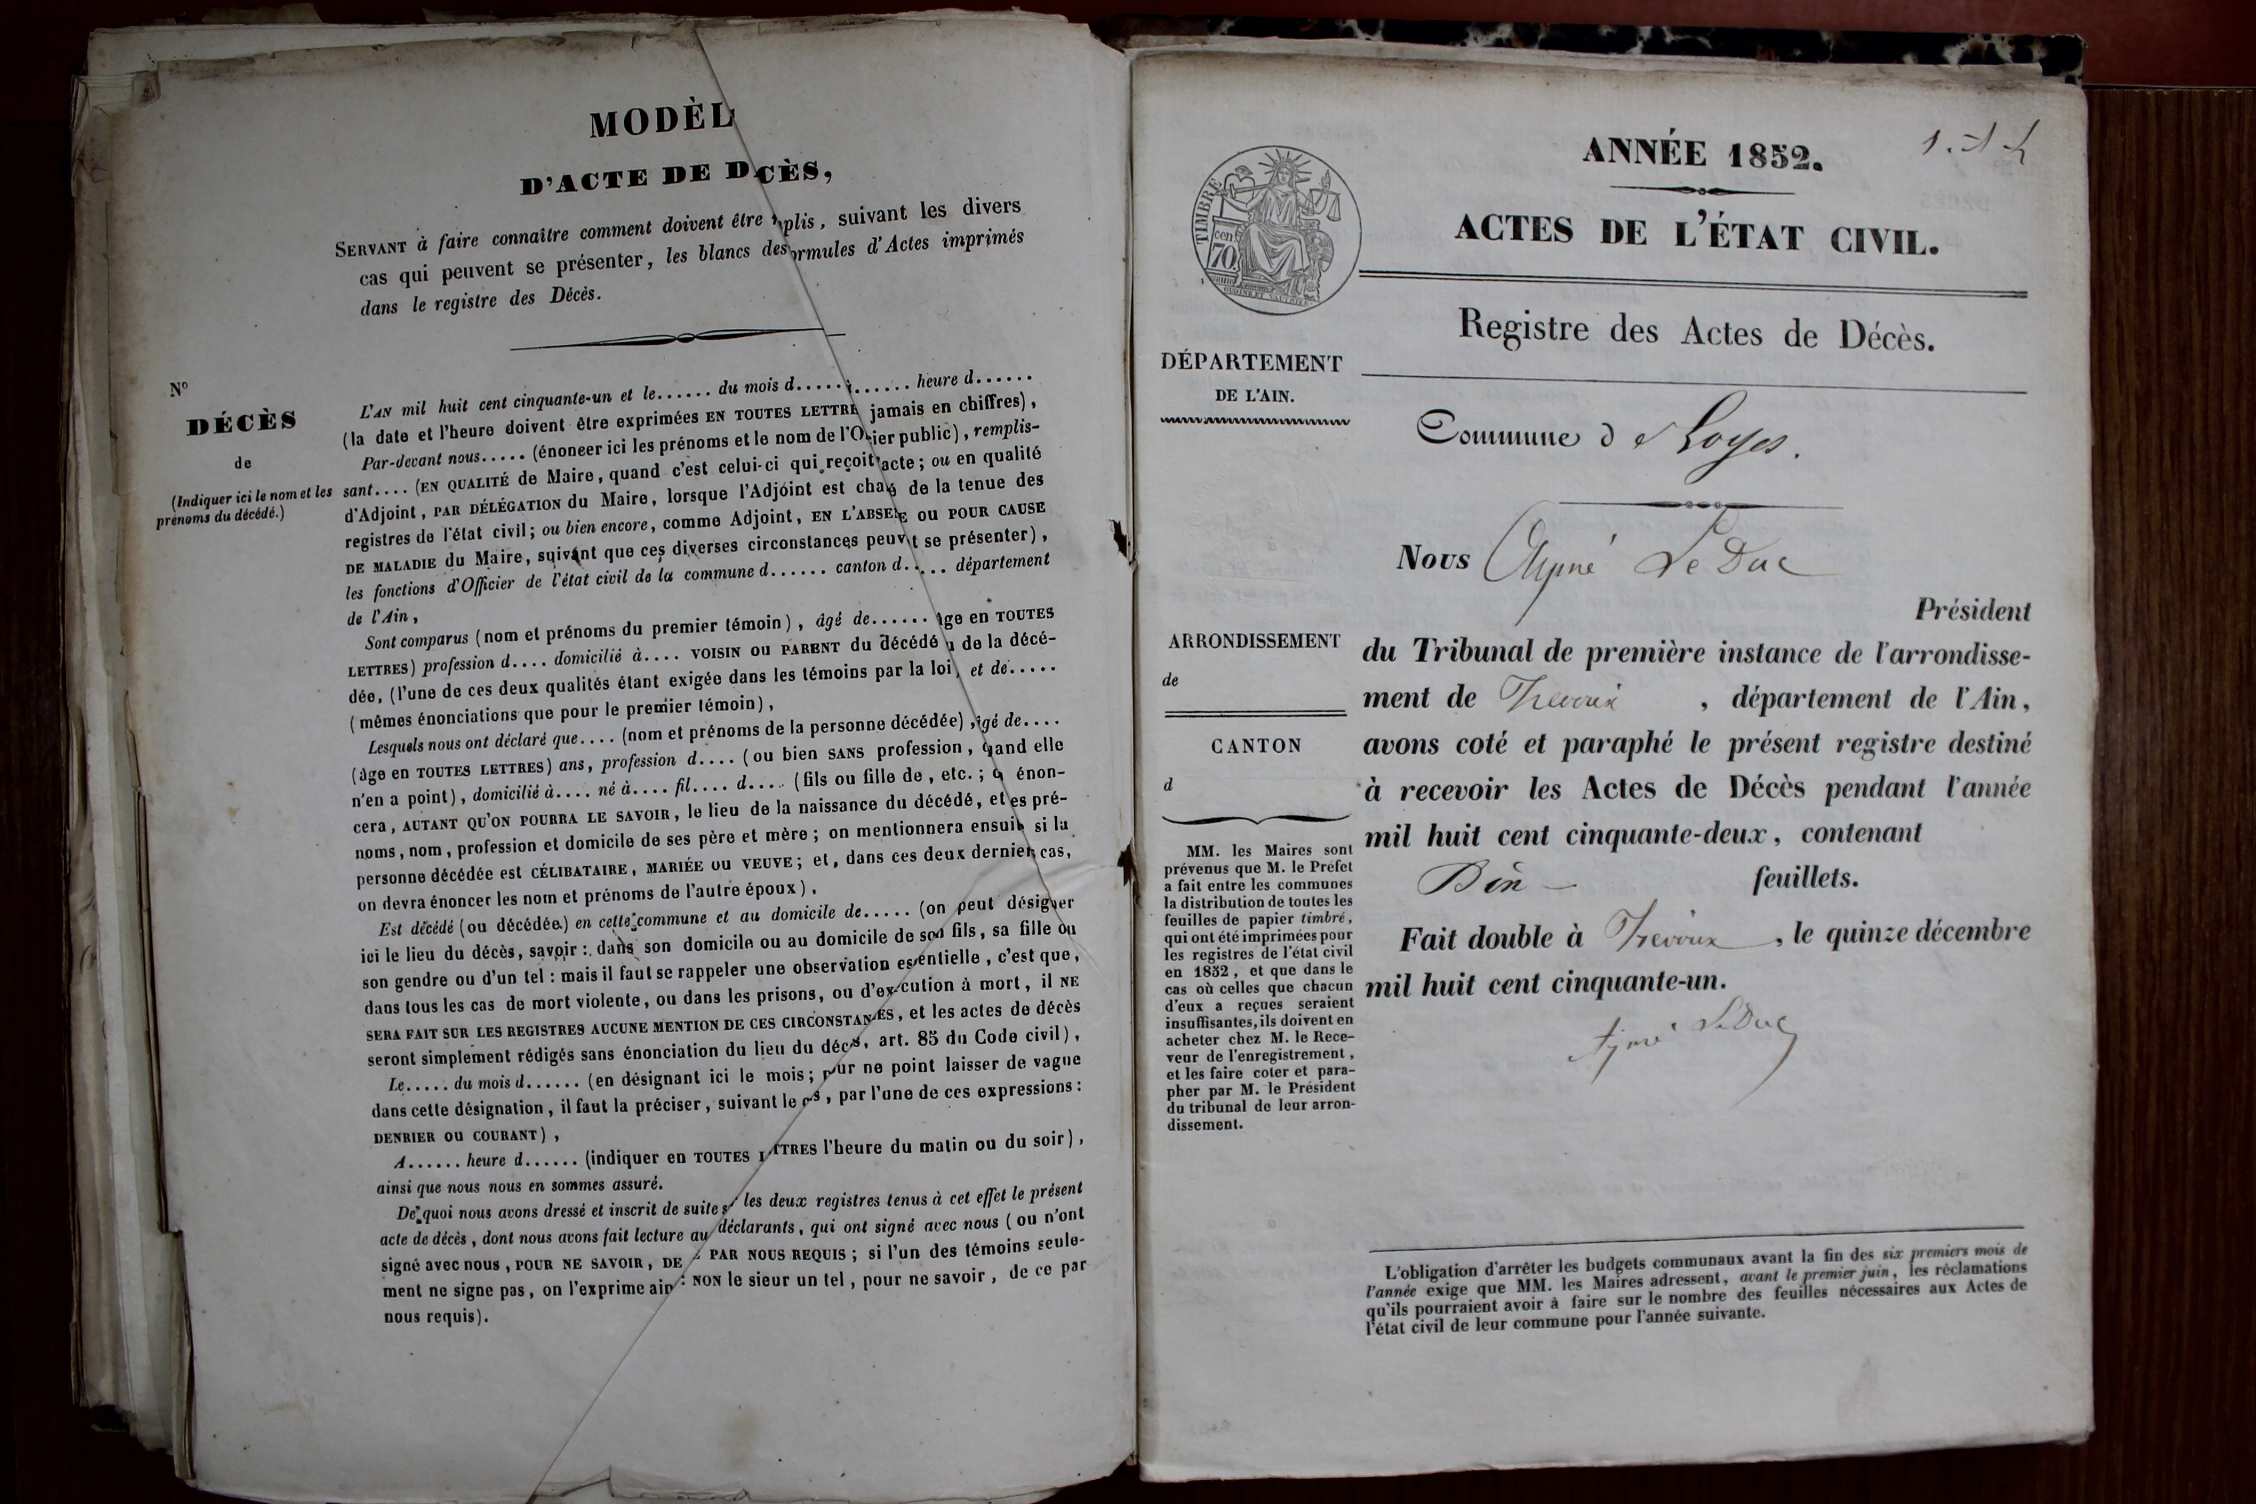 MODÈL
D'ACTE DE D CÈS,
SERVANT à faire connaître comment doivent être plis, suivant les divers
cas qui peuvent se présenter, les blancs des ormules d'Actes imprimés
dans le registre des Décès.
Nº
DÉCÈS
de
(Indiquer ici le nom et les
prénoms du décédé.)
L'AN mil huit cent cinquante-un et le...... du mois d...... ...... heure d......
(la date et l'heure doivent être exprimées EN TOUTES LETTRE jamais en chiffres),
Par-devant nous..... (énoncer ici les prénoms et le nom de l'O ier public), remplis-
sant.... (EN QUALITÉ de Maire, quand c'est celui-ci qui reçoit acte; ou en qualité
d'Adjoint, PAR DÉLÉGATION du Maire, lorsque l'Adjoint est cha é de la tenue des
registres de l'état civil; ou bien encore, comme Adjoint, EN L'ABSE E OU POUR CAUSE
DE MALADIE du Maire, suivant que ces diverses circonstances peuv t se présenter),
les fonctions d'Officier de l'état civil de la commune d...... canton d..... département
de l'Ain,
Sont comparus (nom et prénoms du premier témoin), âgé de...... âge en TOUTES
LETTRES) profession d.... domicilié à.... VOISIN OU PARENT du décédé u de la décé-
dée, (l'une de ces deux qualités étant exigée dans les témoins par la loi, et de.....
(mêmes énonciations que pour le premier témoin),
Lesquels nous ont déclaré que.... (nom et prénoms de la personne décédée), âgé de....
(âge en TOUTES LETTRES) ans, profession d.... (ou bien SANS profession, q and elle
n'en a point), domicilié à.... né à.... fil.... d.... (fils ou fille de, etc.; o énon-
cera, AUTANT QU'ON POURRA LE SAVOIR, le lieu de la naissance du décédé, et es pré-
noms, nom, profession et domicile de ses père et mère; on mentionnera ensuit si la
personne décédée est CÉLIBATAIRE, MARIÉE OU VEUVE; et, dans ces deux dernier cas,
on devra énoncer les nom et prénoms de l'autre époux),
Est décédé (ou décédée) en cette commune et au domicile de..... (on peut désigner
ici le lieu du décès, savoir: dans son domicile ou au domicile de son fils, sa fille ou
son gendre ou d'un tel: mais il faut se rappeler une observation essentielle, c'est que,
dans tous les cas de mort violente, ou dans les prisons, ou d'exécution à mort, il NE
SERA FAIT SUR LES REGISTRES AUCUNE MENTION DE CES CIRCONSTAN ES, et les actes de décès
seront simplement rédigés sans énonciation du lieu du décès, art. 85 du Code civil),
Le..... du mois d...... (en désignant ici le mois; pour ne point laisser de vague
dans cette désignation, il faut la préciser, suivant le cas, par l'une de ces expressions:
DENRIER OU COURANT),
A...... heure d...... (indiquer en TOUTES LETTRES l'heure du matin ou du soir),
ainsi que nous nous en sommes assuré.
De quoi nous avons dressé et inscrit de suite s les deux registres tenus à cet effet le présent
acte de décès, dont nous avons fait lecture au déclarants, qui ont signé avec nous (ou n'ont
signé avec nous, POUR NE SAVOIR, DE E PAR NOUS REQUIS; si l'un des témoins seule-
ment ne signe pas, on l'exprime ain : NON le sieur un tel, pour ne savoir, de ce par
nous requis).
ANNÉE 1852.
ACTES DE L'ÉTAT CIVIL.
TIMBRE
cent
70
Registre des Actes de Décès.
DÉPARTEMENT
DE L'AIN.
Commune de Loyes.
Nous Aymé LeDuc
Président
ARRONDISSEMENT
de
CANTON
d
du Tribunal de première instance de l'arrondisse-
ment de Trévoux, département de l'Ain,
avons coté et paraphé le présent registre destiné
à recevoir les Actes de Décès pendant l'année
mil huit cent cinquante-deux, contenant
feuillets.
Fait double à Trévoux, le quinze décembre
mil huit cent cinquante-un.
Aymé LeDuc
MM. les Maires sont
prévenus que M. le Préfet
a fait entre les communes
la distribution de toutes les
feuilles de papier timbré,
qui ont été imprimées pour
les registres de l'état civil
en 1852, et que dans le
cas où celles que chacun
d'eux a reçues seraient
insuffisantes, ils doivent en
acheter chez M. le Rece-
veur de l'enregistrement,
et les faire coter et para-
pher par M. le Président
du tribunal de leur arron-
dissement.
L'obligation d'arrêter les budgets communaux avant la fin des six premiers mois de
l'année exige que MM. les Maires adressent, avant le premier juin, les réclamations
qu'ils pourraient avoir à faire sur le nombre des feuilles nécessaires aux Actes de
l'état civil de leur commune pour l'année suivante.